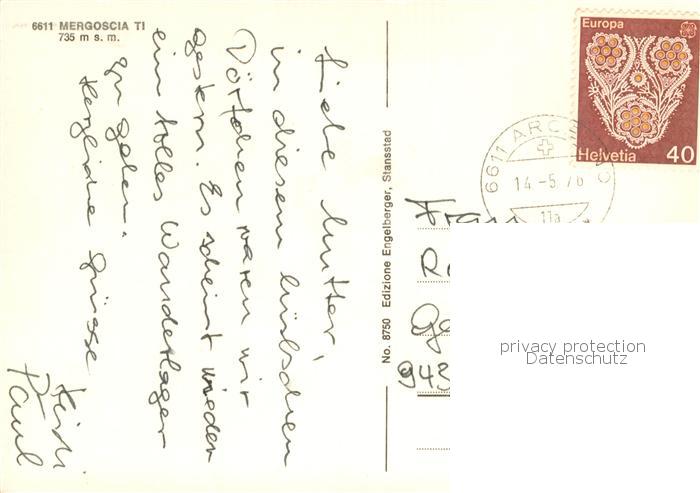 6611 MERGOSCIA TI
735 m s. m.
Liebe Mutter,
in diesem hübschen
Dörfchen waren wir
gestern. Es scheint wieder
ein tolles Wanderlager
zu geben.
Herzliche Grüsse
Heidi
Paul
No. 8750 Edizione Engelberger, Stansstad
Europa
Helvetia 40
6611 ARC
14.-5.76
11a
Frau
943
privacy protection
Datenschutz